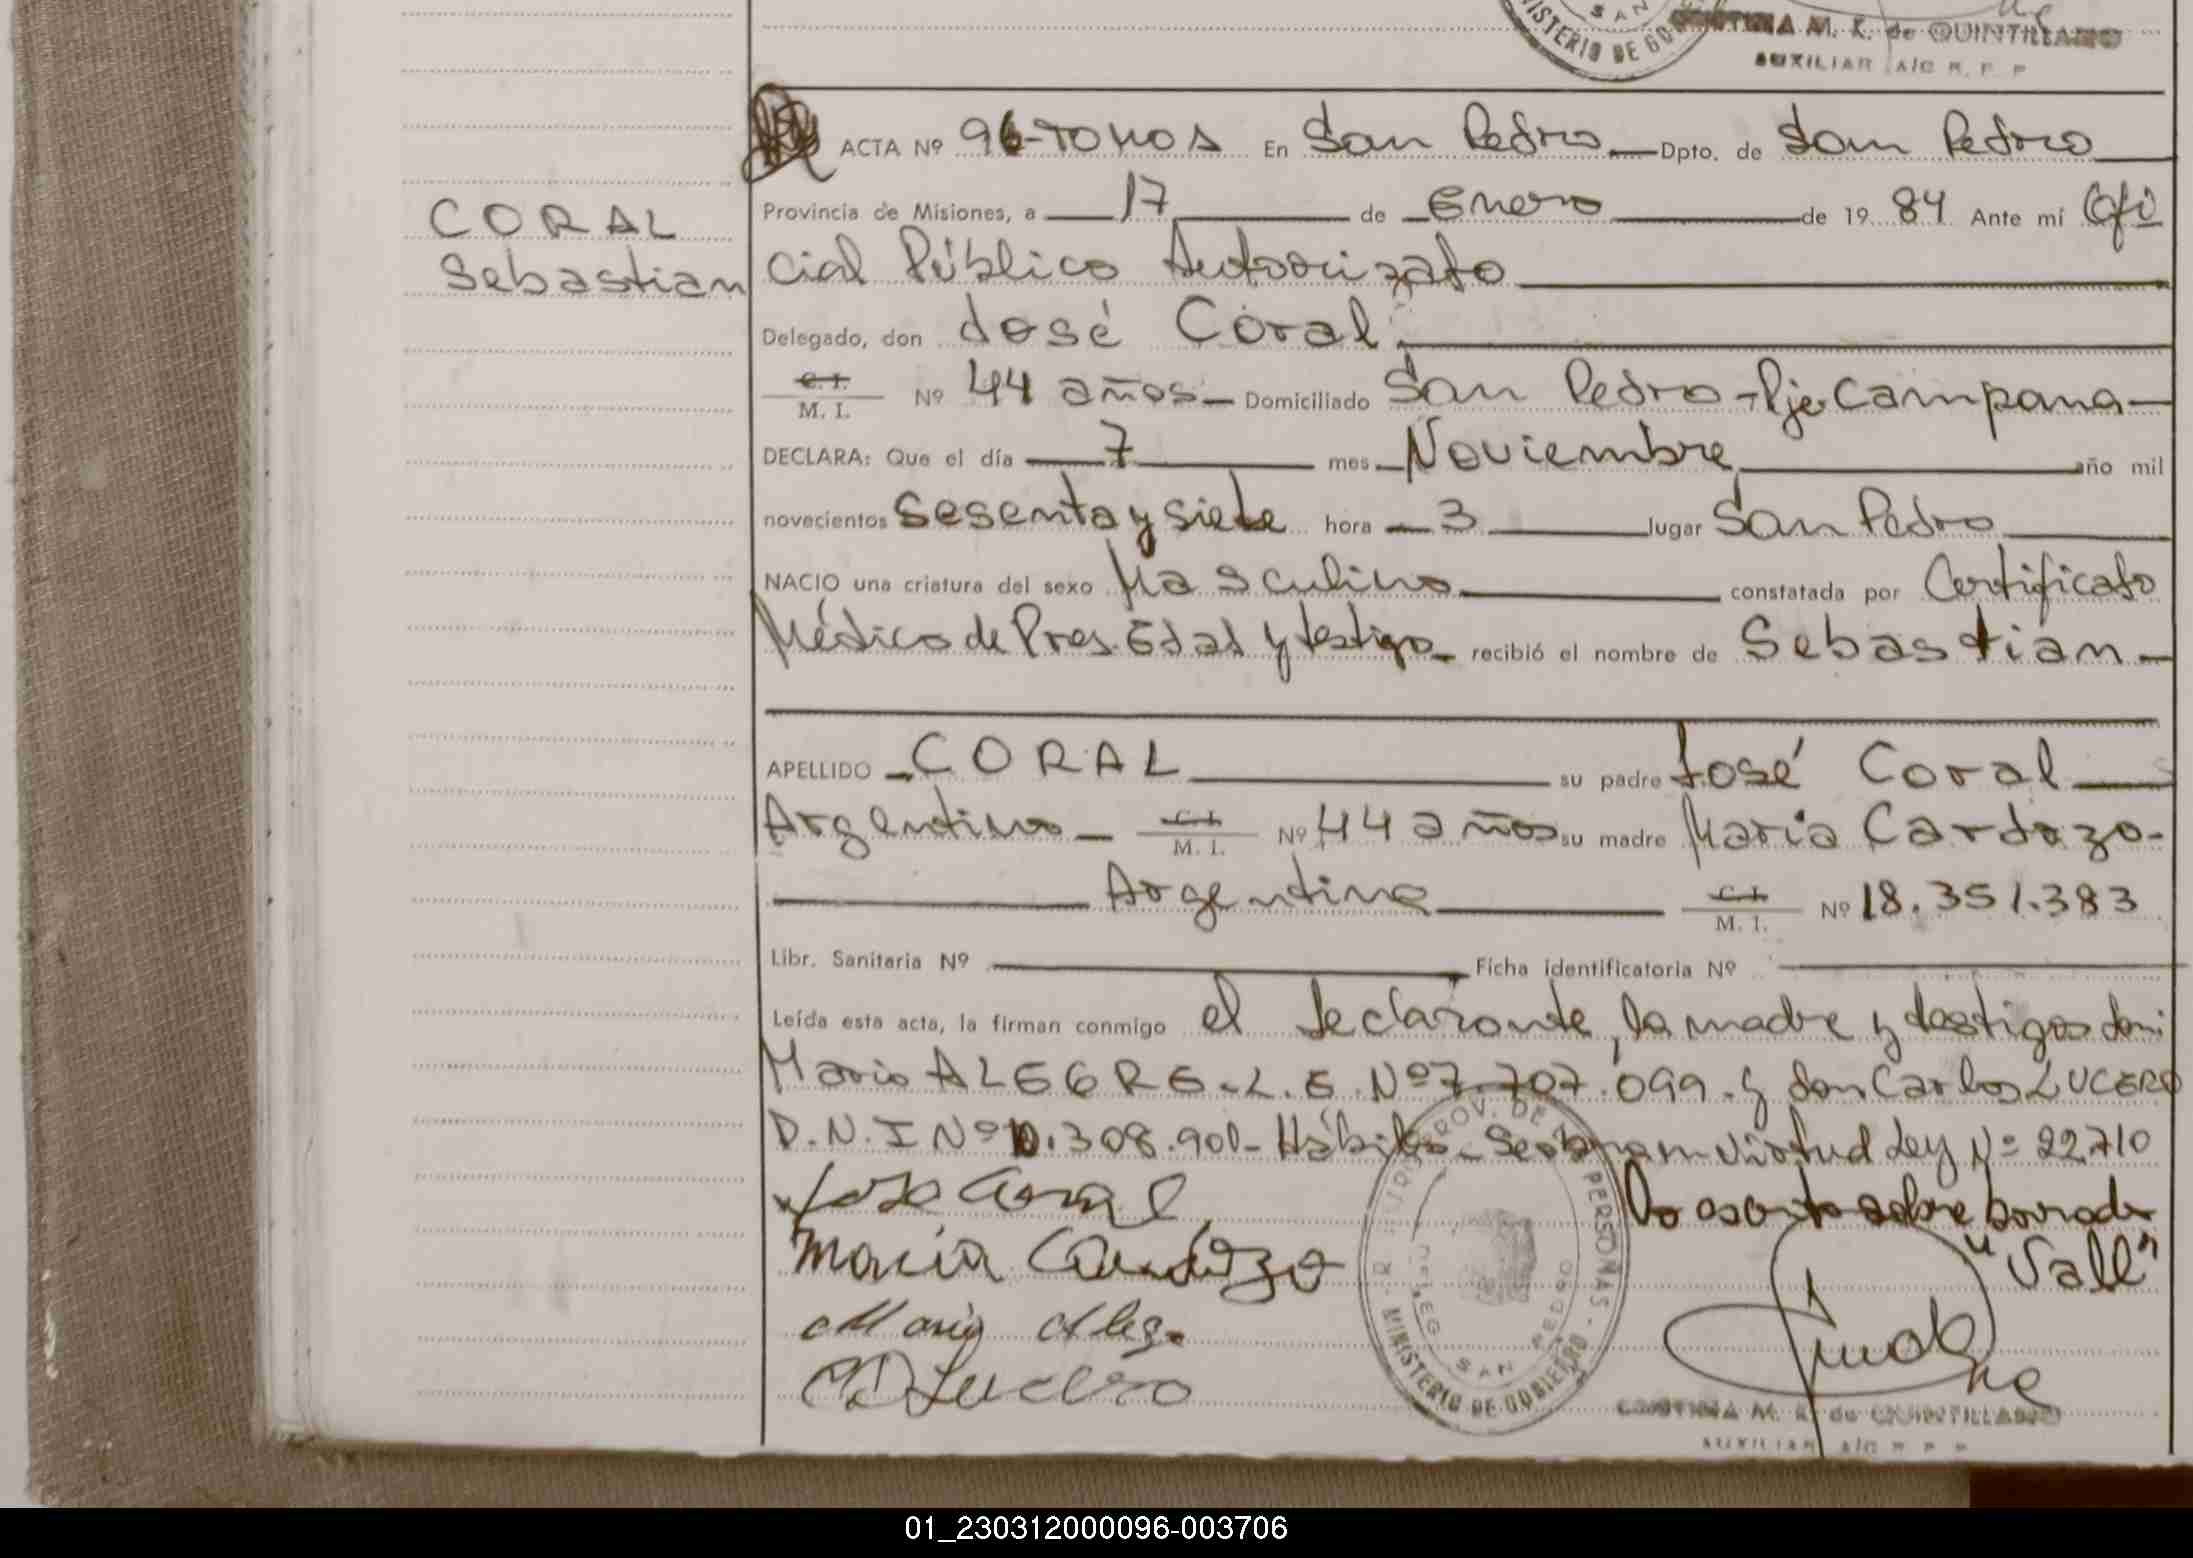 MINISTERIO DE GOB
SAN
CRISTINA M. K. de QUINTILLANO
AUXILIAR A/C R. P. P
ACTA Nº 96-TOMO 1 En San Pedro Dpto. de San Pedro
Provincia de Misiones, a 17 de Enero de 1984 Ante mí Ofi
CORAL
Sebastian
cial Público Autorizato
Delegado, don José Coral
C. I. M. I. Nº 44 años Domiciliado San Pedro-Pje Campana
DECLARA: Que el día 7 mes Noviembre año mil
novecientos sesenta y siete hora 3 lugar San Pedro
NACIO una criatura del sexo Masculino constatada por Certificato
Médico de Pres. Edad y testigo recibió el nombre de Sebastian
APELLIDO CORAL su padre José Coral
Argentino C. I. M. I. Nº 44 años su madre Maria Cardozo-
Argentina C. I. M. I. Nº 18.351.383
Libr. Sanitaria Nº Ficha identificatoria Nº
Leída esta acta, la firman conmigo el declarante, la madre y testigos don:
Mario ALEGRE-L.E. Nº 7.707.099. y don Carlos LUCERO
D.N.I Nº 10.308.901- Hábiles- Se labra en virtud Ley Nº 22.710
Lo escrito sobre borrado
"Vale"
José Coral
Maria Cardozo
Mario Aleg.
Lucero
PROV. DE PERSONAS - MINISTERIO DE GOBIERNO
DELEG. SAN PEDRO
CRISTINA M. K. de QUINTILLANO
AUXILIAR A/C R P P
01_230312000096-003706